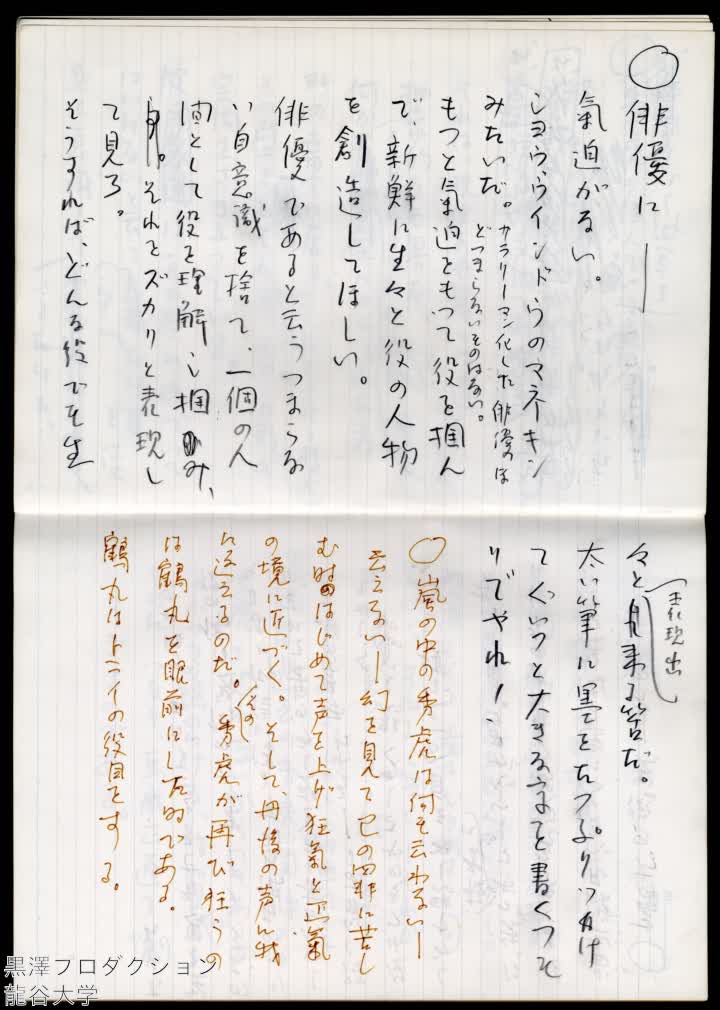 ○俳優に──
氣迫がない。
ショウウインドウのマネーキン
みたいだ。サラリーマン化した俳優ほ
どつまらないものはない。
もつと気迫をもつて役を掴ん
で、新鮮に生々と役の人物
を創造してほしい。
俳優であると云うつまらな
い自意識を捨て、一個の人
間として役を理解し掴み、
それをズカリと表現し
て見ろ。
そうすれば、どんな役でも生
々と表現出来る筈だ。
太い筆に墨をたつぷりつけ
てぐいつと大きな字を書くつも
りでやれ!
○嵐の中の秀虎は何も云わない─
云えない─幻を見て己の罪に苦し
む時はじめて声を上げ狂氣と正氣
の境に近づく。そして、丹後の声に我
に返えるのだ。その秀虎が再び狂うの
は鶴丸を眼前にした時である。
鶴丸はトニイの役目をする。
黒澤プロダクション
龍谷大学